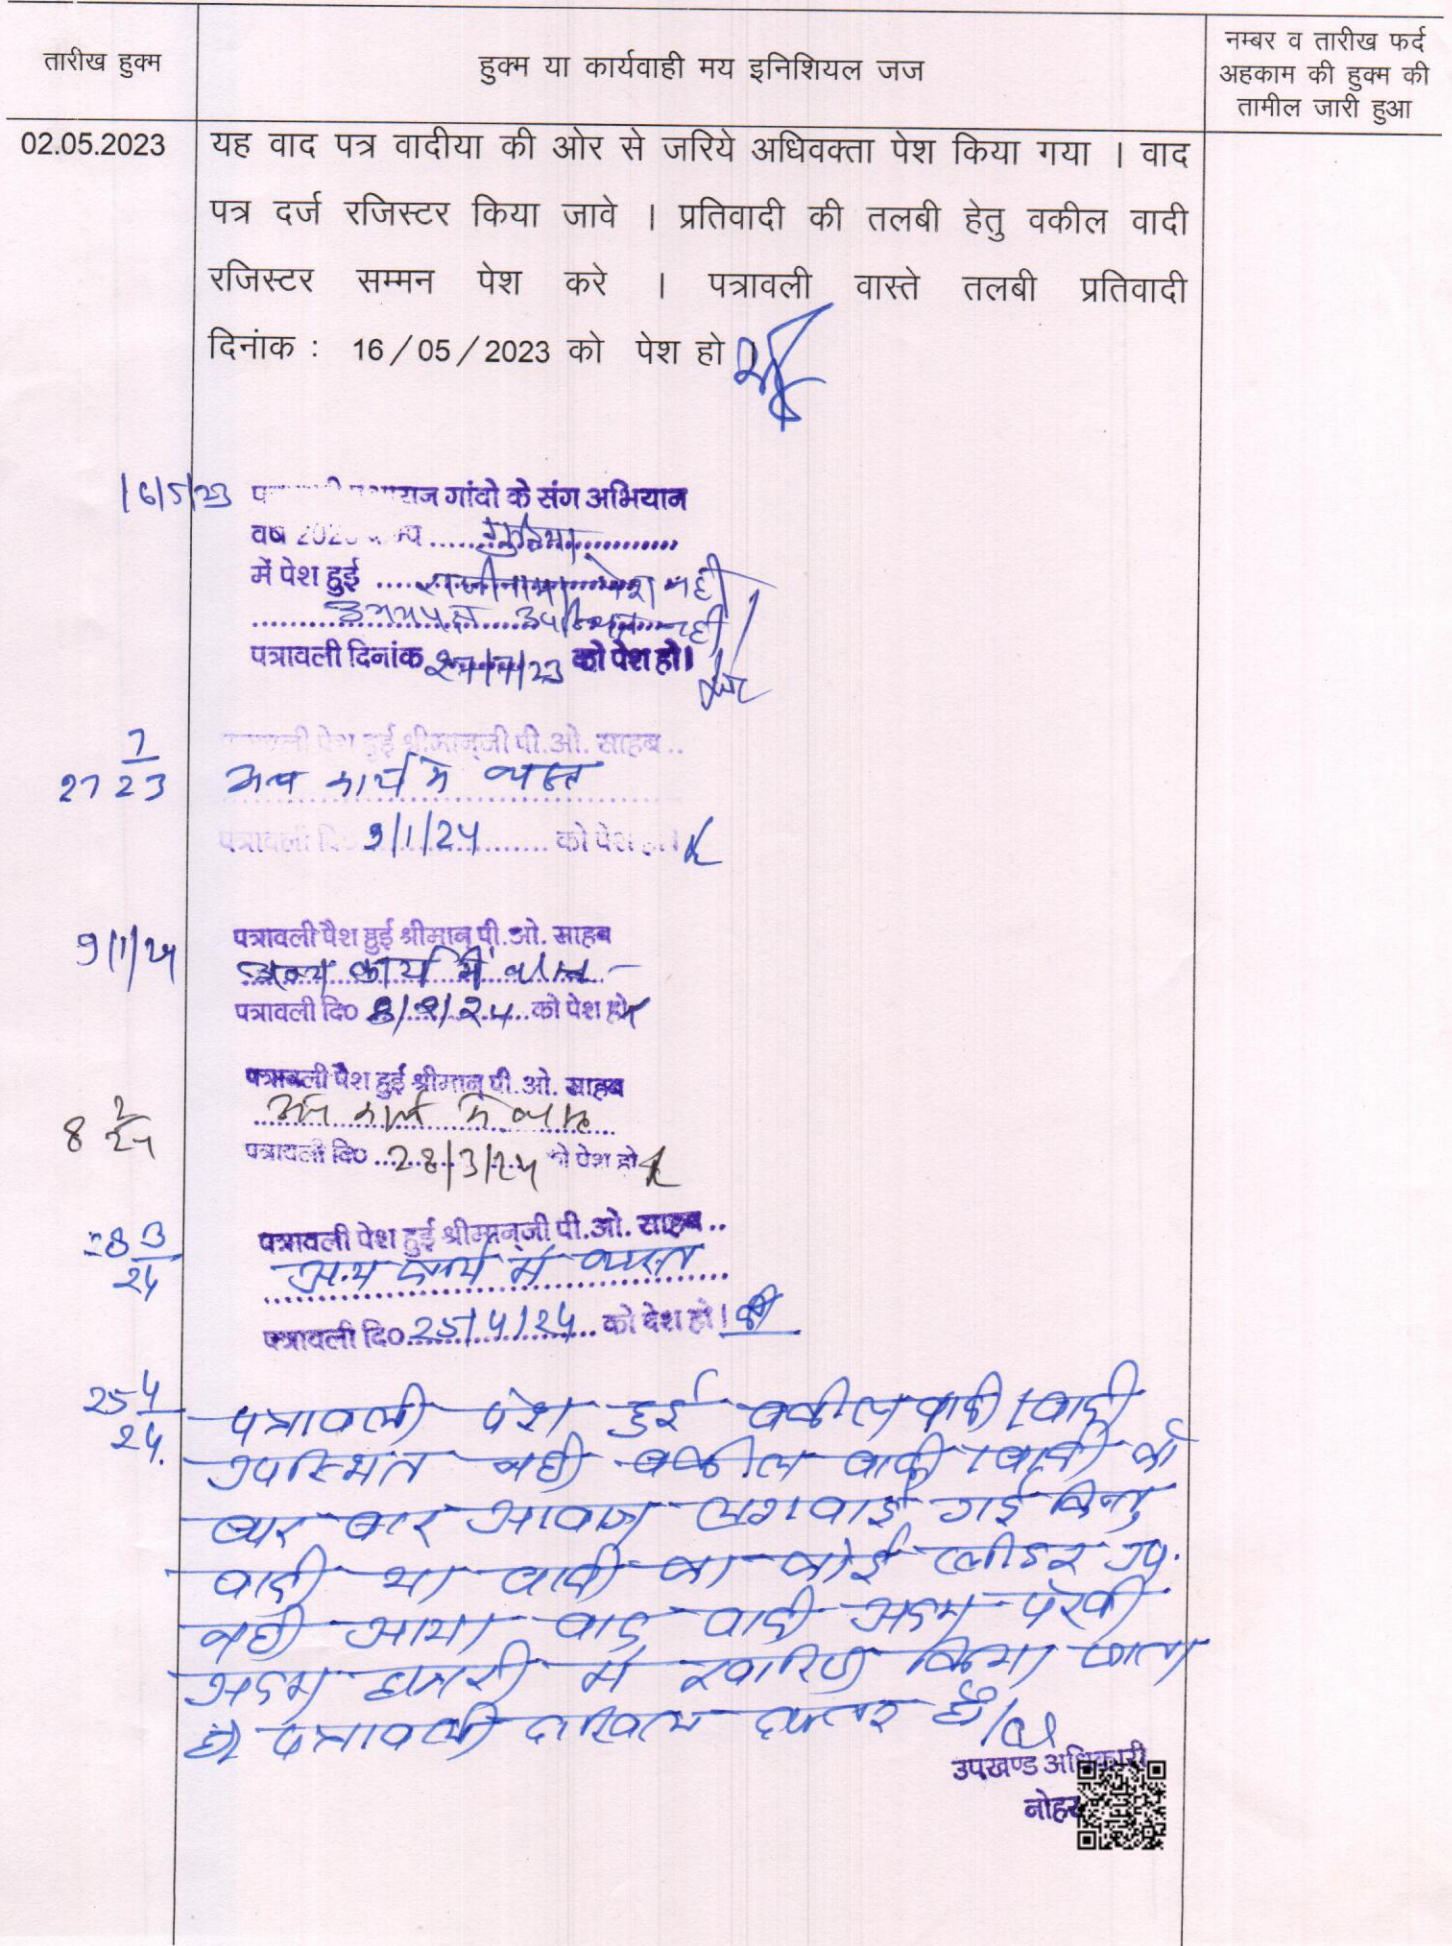 तारीख हुक्म
हुक्म या कार्यवाही मय इनिशियल जज
नम्बर व तारीख फर्द
अहकाम की हुक्म की
तामील जारी हुआ
02.05.2023
यह वाद पत्र वादीया की ओर से जरिये अधिवक्ता पेश किया गया । वाद
पत्र दर्ज रजिस्टर किया जावे । प्रतिवादी की तलबी हेतु वकील वादी
रजिस्टर सम्मन पेश करे । पत्रावली वास्ते तलबी प्रतिवादी
दिनांक : 16/05/2023 को पेश हो
16/5/23
गांवो के संग अभियान
वर्ष
में पेश हुई राजीनामा पेश नही
उभयपक्ष उपस्थित नही
पत्रावली दिनांक 27/7/23 को पेश हो।
27 7/23
पत्रावली पेश हुई श्रीमान्जी पी.ओ. साहब ..
अन्य कार्य मे व्यस्त
पत्रावली दि० 9/1/24 को पेश हो।
9/1/24
पत्रावली पैश हुई श्रीमान् पी.ओ. साहब
अन्य कार्य में व्यस्त
पत्रावली दि० 8/2/24 को पेश हो
8 2/24
पत्रावली पैश हुई श्रीमान् पी.ओ. साहब
अन्य कार्य मे व्यस्त
पत्रावली दि० 28/3/24 को पेश हो
28 3/24
पत्रावली पेश हुई श्रीमान्जी पी.ओ. साहब ..
अन्य कार्य में व्यस्त
पत्रावली दि० 25/4/24 को पेश हो।
25 4/24.
पत्रावली पेश हुई वकील वादी/वादी
उपस्थित नही वकील वादी/वादी को
बार बार आवाज लगवाई गई किन्तु
वादी या वादी का कोई प्लीडर उप.
नही आया वाद वादी अदम पैरवी
अदम हाजरी में खारिज किया जाता
है। पत्रावली दाखिल दफ्तर हो।
उपखण्ड अधिकारी
नोहर